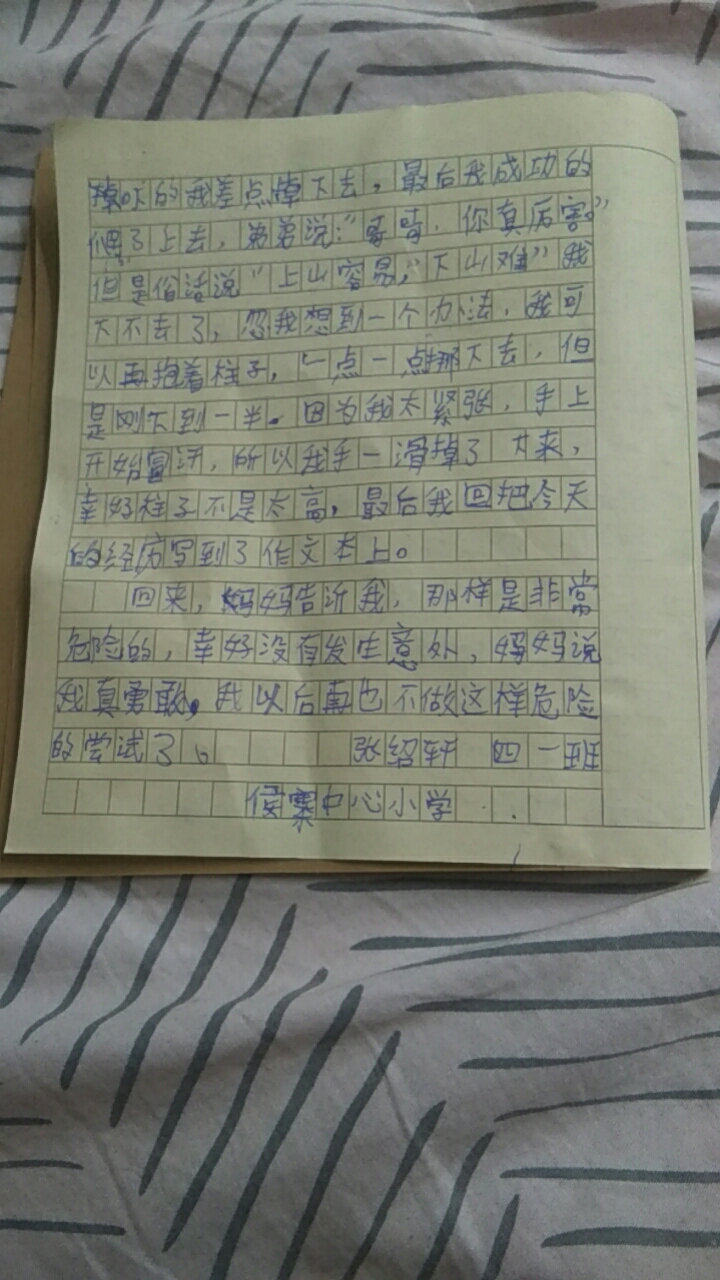 掉吓的我差点掉下去，最后我成功的
爬了上去，弟弟说：“哥哥，你真厉害。”
但是俗话说“上山容易，”下山难”我
下不去了，忽我想到一个办法，我可
以再抱着柱子，一点一点挪下去，但
是刚下到一半。因为我太紧张，手上
开始冒汗，所以我手一滑掉了下来，
幸好柱子不是太高，最后我回把今天
的经历写到了作文本上。
回来，妈妈告诉我，那样是非常
危险的，幸好没有发生意外，妈妈说
我真勇敢，我以后再也不做这样危险
的尝试了。 张绍轩 四一班
侯寨中心小学